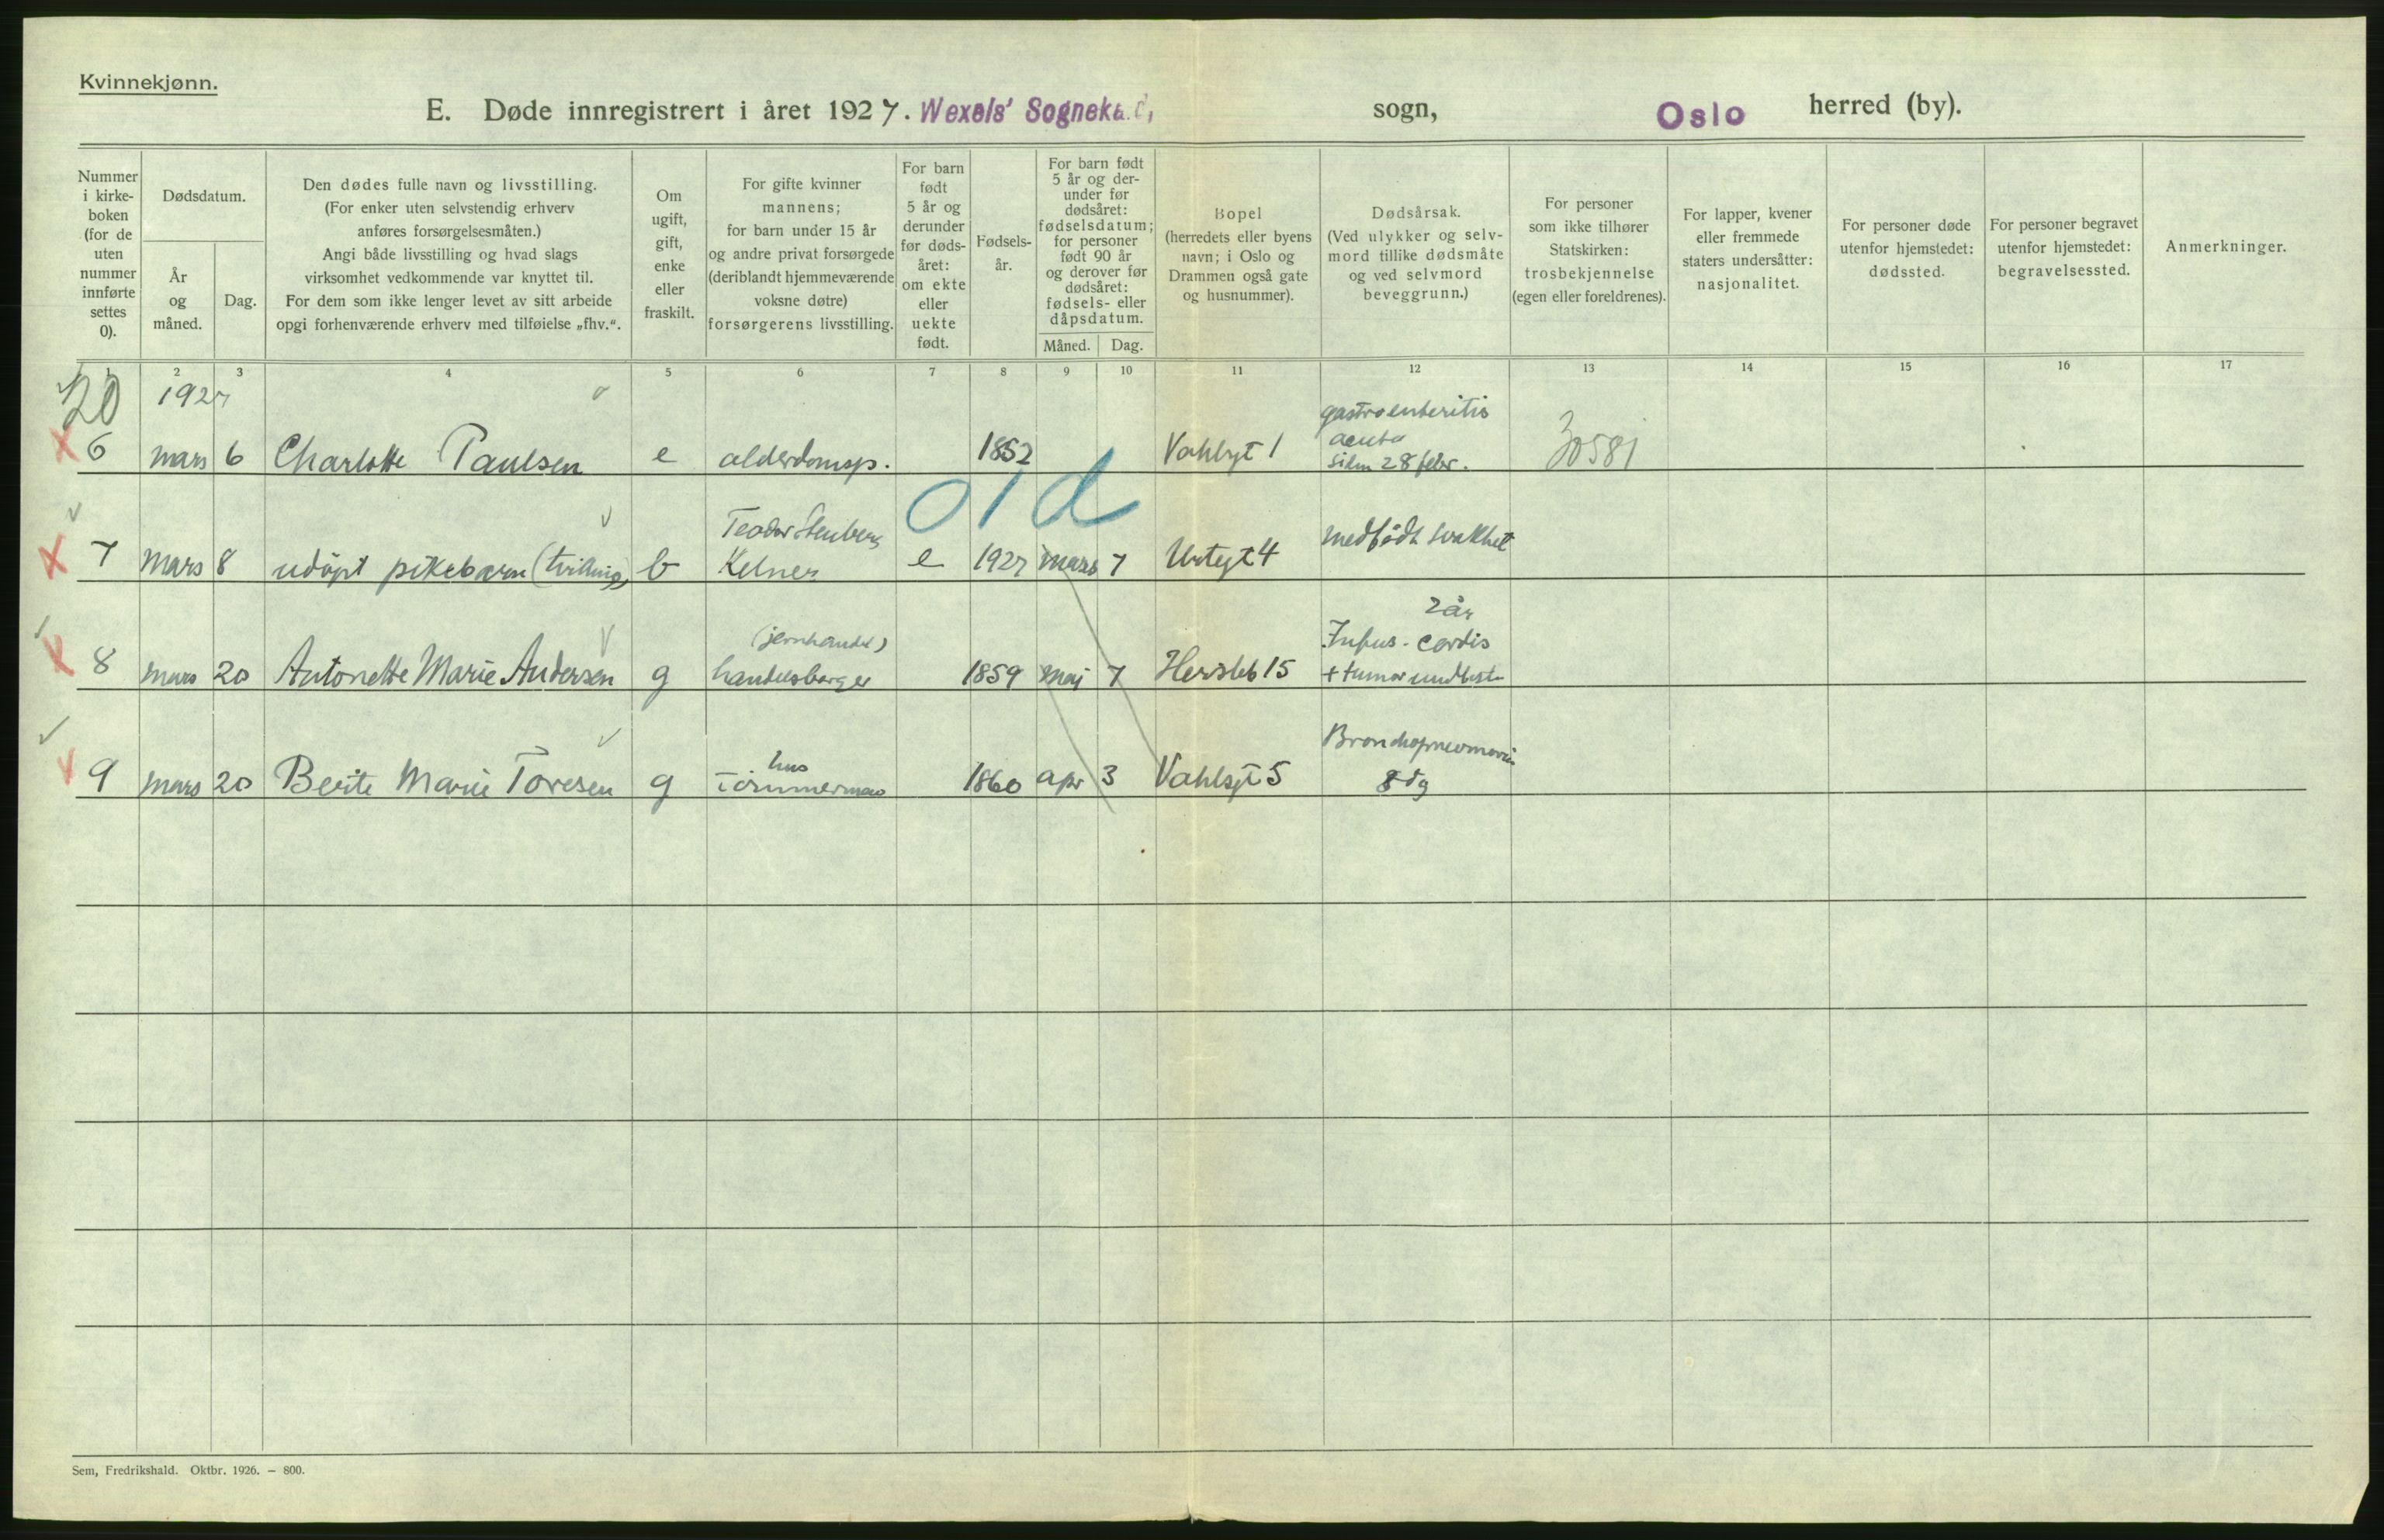 Kvinnekjønn.
E. Døde innregistrert i året 1927. Wexels' Sognek sogn, Oslo herred (by).
Nummer i kirke-boken (for de uten nummer innførte settes 0).
Dødsdatum.
År og måned.
Dag.
Den dødes fulle navn og livsstilling.
(For enker uten selvstendig erhverv
anføres forsørgelsesmåten.)
Angi både livsstilling og hvad slags
virksomhet vedkommende var knyttet til.
For dem som ikke lenger levet av sitt arbeide
opgi forhenværende erhverv med tilføielse „fhv.“.
Om ugift, gift, enke eller fraskilt.
For gifte kvinner
mannens;
for barn under 15 år
og andre privat forsørgede
(deriblandt hjemmeværende
voksne døtre)
forsørgerens livsstilling.
For barn født 5 år og derunder før døds-året: om ekte eller uekte født.
Fødsels-år.
For barn født
5 år og der-
under før
dødsåret:
fødselsdatum;
for personer
født 90 år
og derover før
dødsåret:
fødsels- eller
dåpsdatum.
Måned. Dag.
Bopel
(herredets eller byens
navn; i Oslo og
Drammen også gate
og husnummer).
Dødsårsak.
(Ved ulykker og selv-
mord tillike dødsmåte
og ved selvmord
beveggrunn.)
For personer
som ikke tilhører
Statskirken:
trosbekjennelse
(egen eller foreldrenes).
For lapper, kvener
eller fremmede
staters undersåtter:
nasjonalitet.
For personer døde
utenfor hjemstedet:
dødssted.
For personer begravet
utenfor hjemstedet:
begravelsessted.
Anmerkninger.
1 2 3 4 5 6 7 8 9 10 11 12 13 14 15 16 17
20 1927
gastroenteritis
acuta
6 mars 6 Charlotte Paulsen e alderdomsp. 1852 Vahlsgt 1 siden 28 febr. 30581
Teodor Stenberg
7 mars 8 udøpt pikebarn (tvilling) b Kelner e 1927 mars 7 Urtegt 4 medfødt svakhet
2 år
(jernhandel) cordis
8 mars 20 Antonette Marie Andersen g handelsborger 1859 mai 7 Herslebs 15 + tumor
hus Bronchopneumoni
9 mars 20 Berte Marie Toresen g tømmermann 1860 apr 3 Vahlsgt 5 8 dg
Sem, Fredrikshald. Oktbr. 1926. – 800.